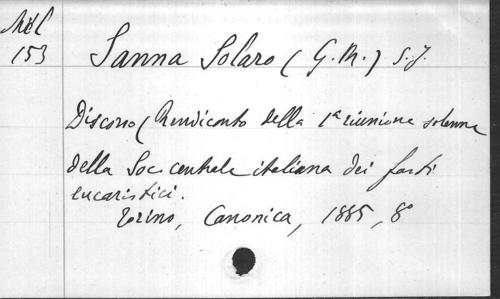 Mél
153
Sanna Solaro (G. M.) S.J.
Discorso (Rendiconto della 1a riunione solenne
della Soc. centrale italiana dei fasti
eucaristici.
Torino, Canonica, 1885, 8°